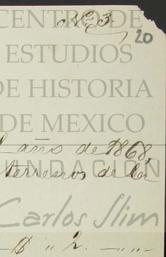 CENTRO DE
Nº 3.
20
ESTUDIOS
DE HISTORIA
DE MEXICO
año de 1868,
FUNDACIÓN
terrenos de la
Carlos Slim